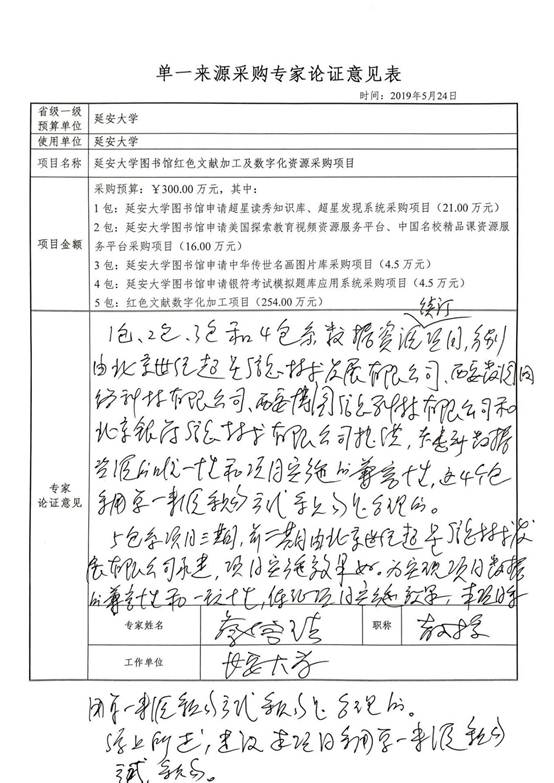 单一来源采购专家论证意见表
时间：2019年5月24日
省级一级
预算单位
延安大学
使用单位
延安大学
项目名称
延安大学图书馆红色文献加工及数字化资源采购项目
项目金额
采购预算：￥300.00 万元，其中：
1 包：延安大学图书馆申请超星读秀知识库、超星发现系统采购项目（21.00 万元）
2 包：延安大学图书馆申请美国探索教育视频资源服务平台、中国名校精品课资源服
务平台采购项目（16.00 万元）
3 包：延安大学图书馆申请中华传世名画图片库采购项目（4.5 万元）
4 包：延安大学图书馆申请银符考试模拟题库应用系统采购项目（4.5 万元）
5 包：红色文献数字化加工项目（254.00 万元）
专家
论证意见
续订
1包、2包、3包和4包系数据资源项目，分别
由北京世纪超星信息技术发展有限公司、西安 网
络科技有限公司、西安博图信息科技有限公司和
北京银符信息技术有限公司提供，考虑到数据
资源的唯一性和项目实施的兼容性，这4个包
采用单一来源采购方式采购是合理的。
5包系项目三期，前二期由北京世纪超星信息技术发
展有限公司承建，项目实施效果好。为实现项目数据
的兼容性和一致性，保证项目实施效果，本项目采
专家姓名
职称
教授
工作单位
西安大学
用单一来源采购方式采购是合理的。
综上所述，建议 项目采用单一来源采购
方式采购。